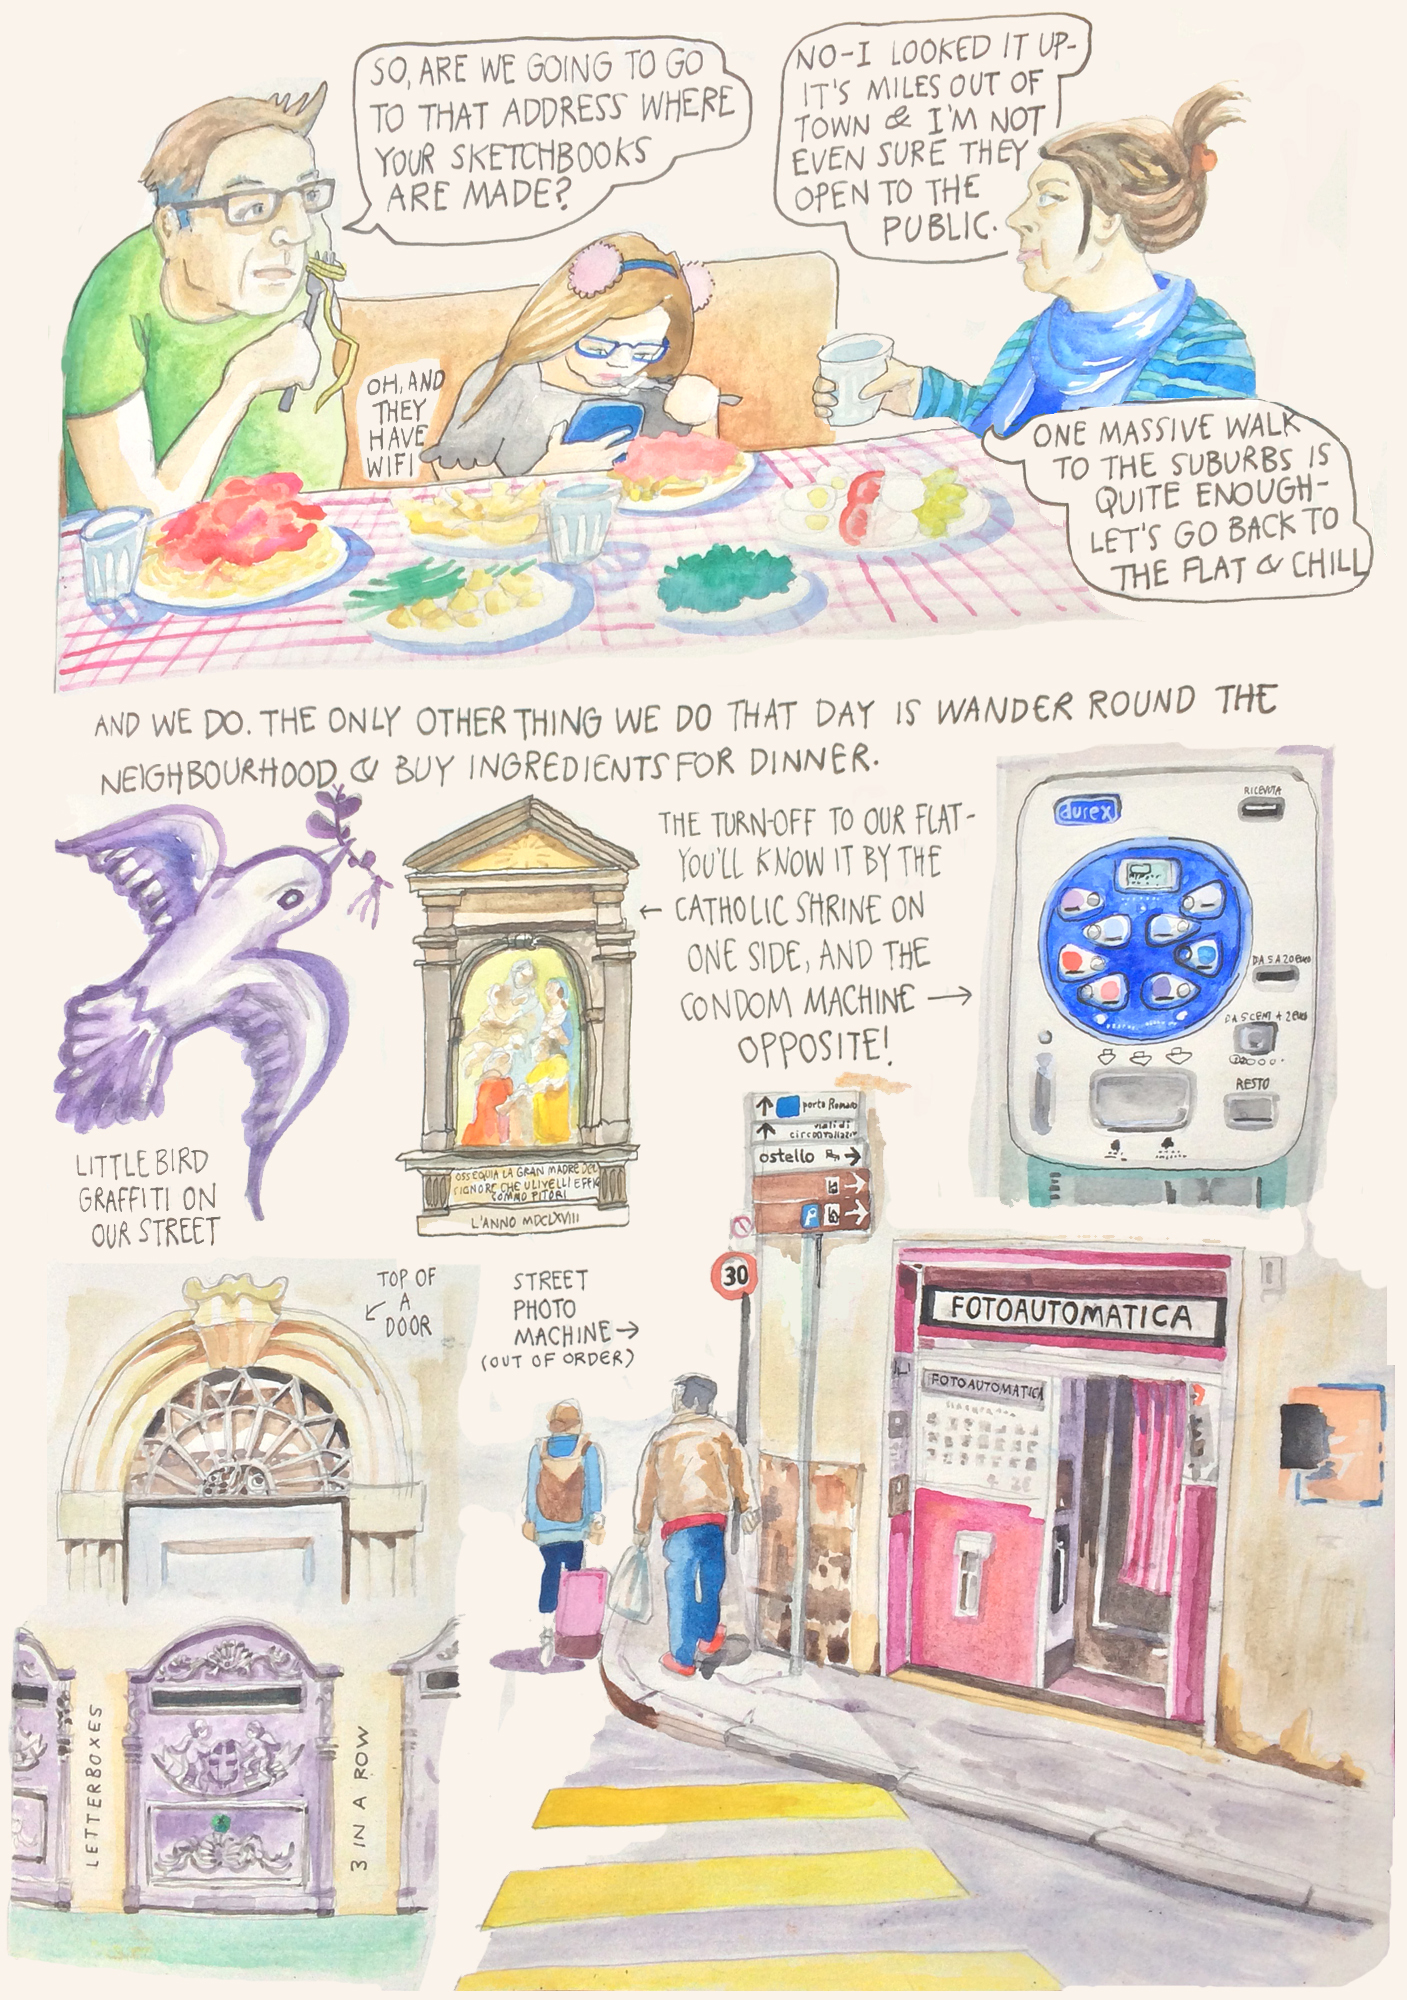 SO, ARE WE GOING TO GO
TO THAT ADDRESS WHERE
YOUR SKETCHBOOKS
ARE MADE?
NO-I LOOKED IT UP-
IT'S MILES OUT OF
TOWN & I'M NOT
EVEN SURE THEY
OPEN TO THE
PUBLIC.
OH, AND
THEY
HAVE
WIFI
ONE MASSIVE WALK
TO THE SUBURBS IS
QUITE ENOUGH-
LET'S GO BACK TO
THE FLAT & CHILL
AND WE DO. THE ONLY OTHER THING WE DO THAT DAY IS WANDER ROUND THE
NEIGHBOURHOOD & BUY INGREDIENTS FOR DINNER.
THE TURN-OFF TO OUR FLAT-
YOU'LL KNOW IT BY THE
← CATHOLIC SHRINE ON
ONE SIDE, AND THE
CONDOM MACHINE →
OPPOSITE!
durex
RICEVUTA
DA 5 A 20 EURO
DA 5 CENT A 2 EURO
RESTO
OSSEQUIA LA GRAN MADRE DEL
SIGNORE CHE ULIVELLI EFFIG
SOMMO PITORI
L'ANNO MDCLXVIII
LITTLE BIRD
GRAFFITI ON
OUR STREET
porta Romana
viali di
circonvallazio
ostello
P
30
TOP OF
A
DOOR
STREET
PHOTO
MACHINE →
(OUT OF ORDER)
FOTOAUTOMATICA
FOTOAUTOMATICA
LETTERBOXES
3 IN A ROW